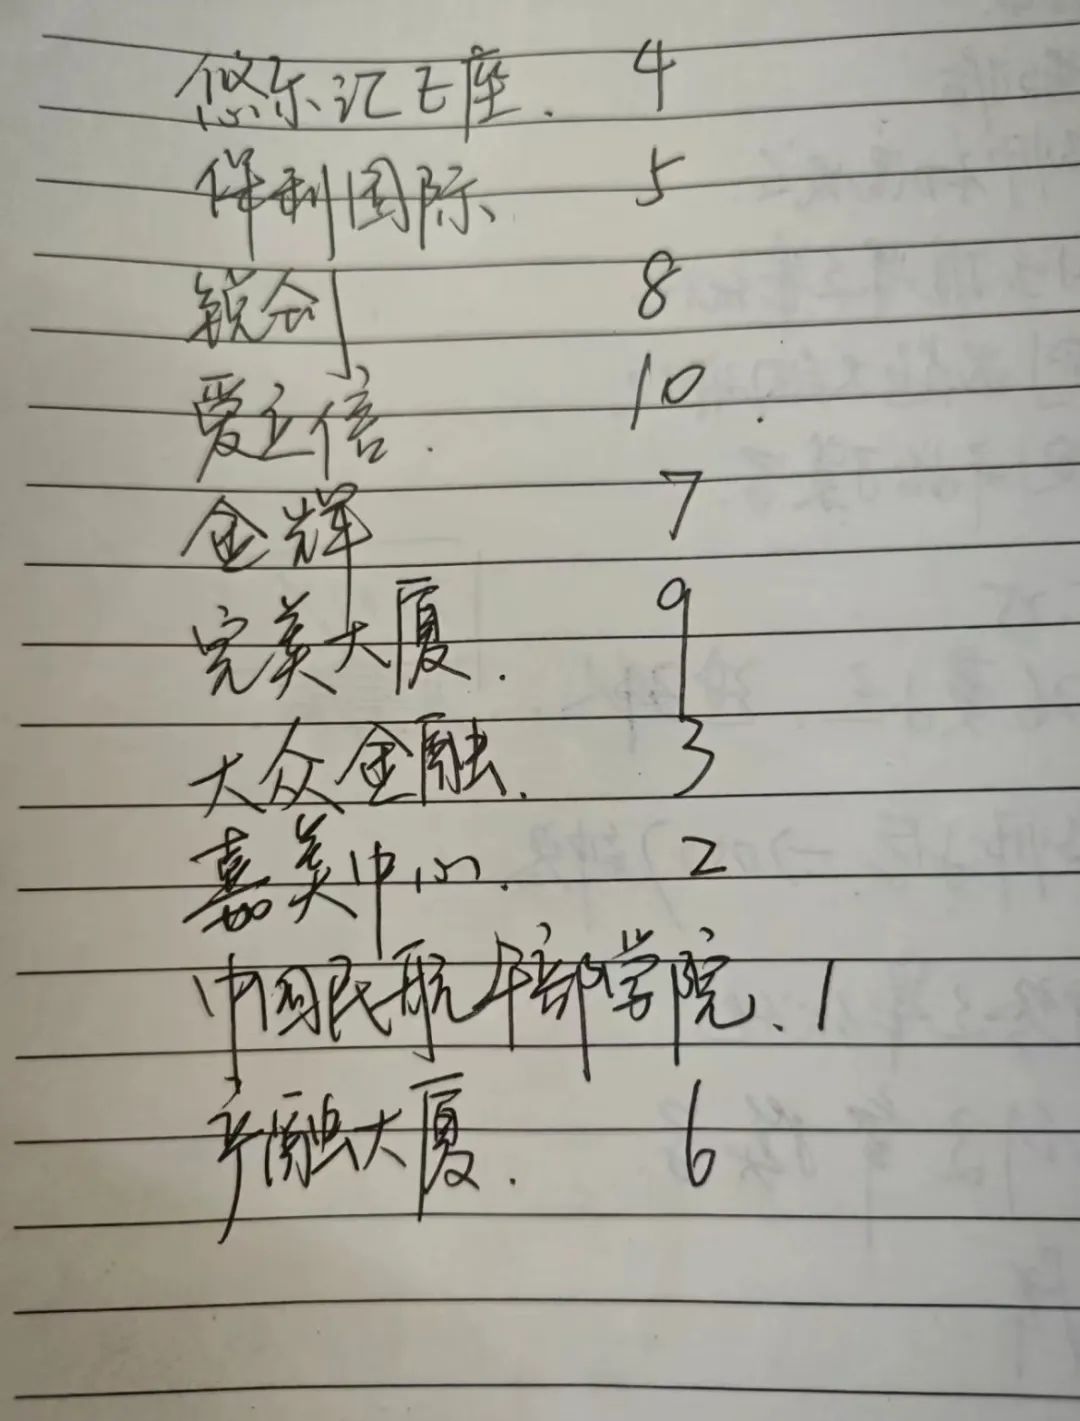 悠乐汇E座. 4
保利国际 5
锐创 8
爱立信. 10
金辉 7
完美大厦. 9
大众金融. 3
嘉美中心. 2
中国民航干部学院、1
产融大厦. 6